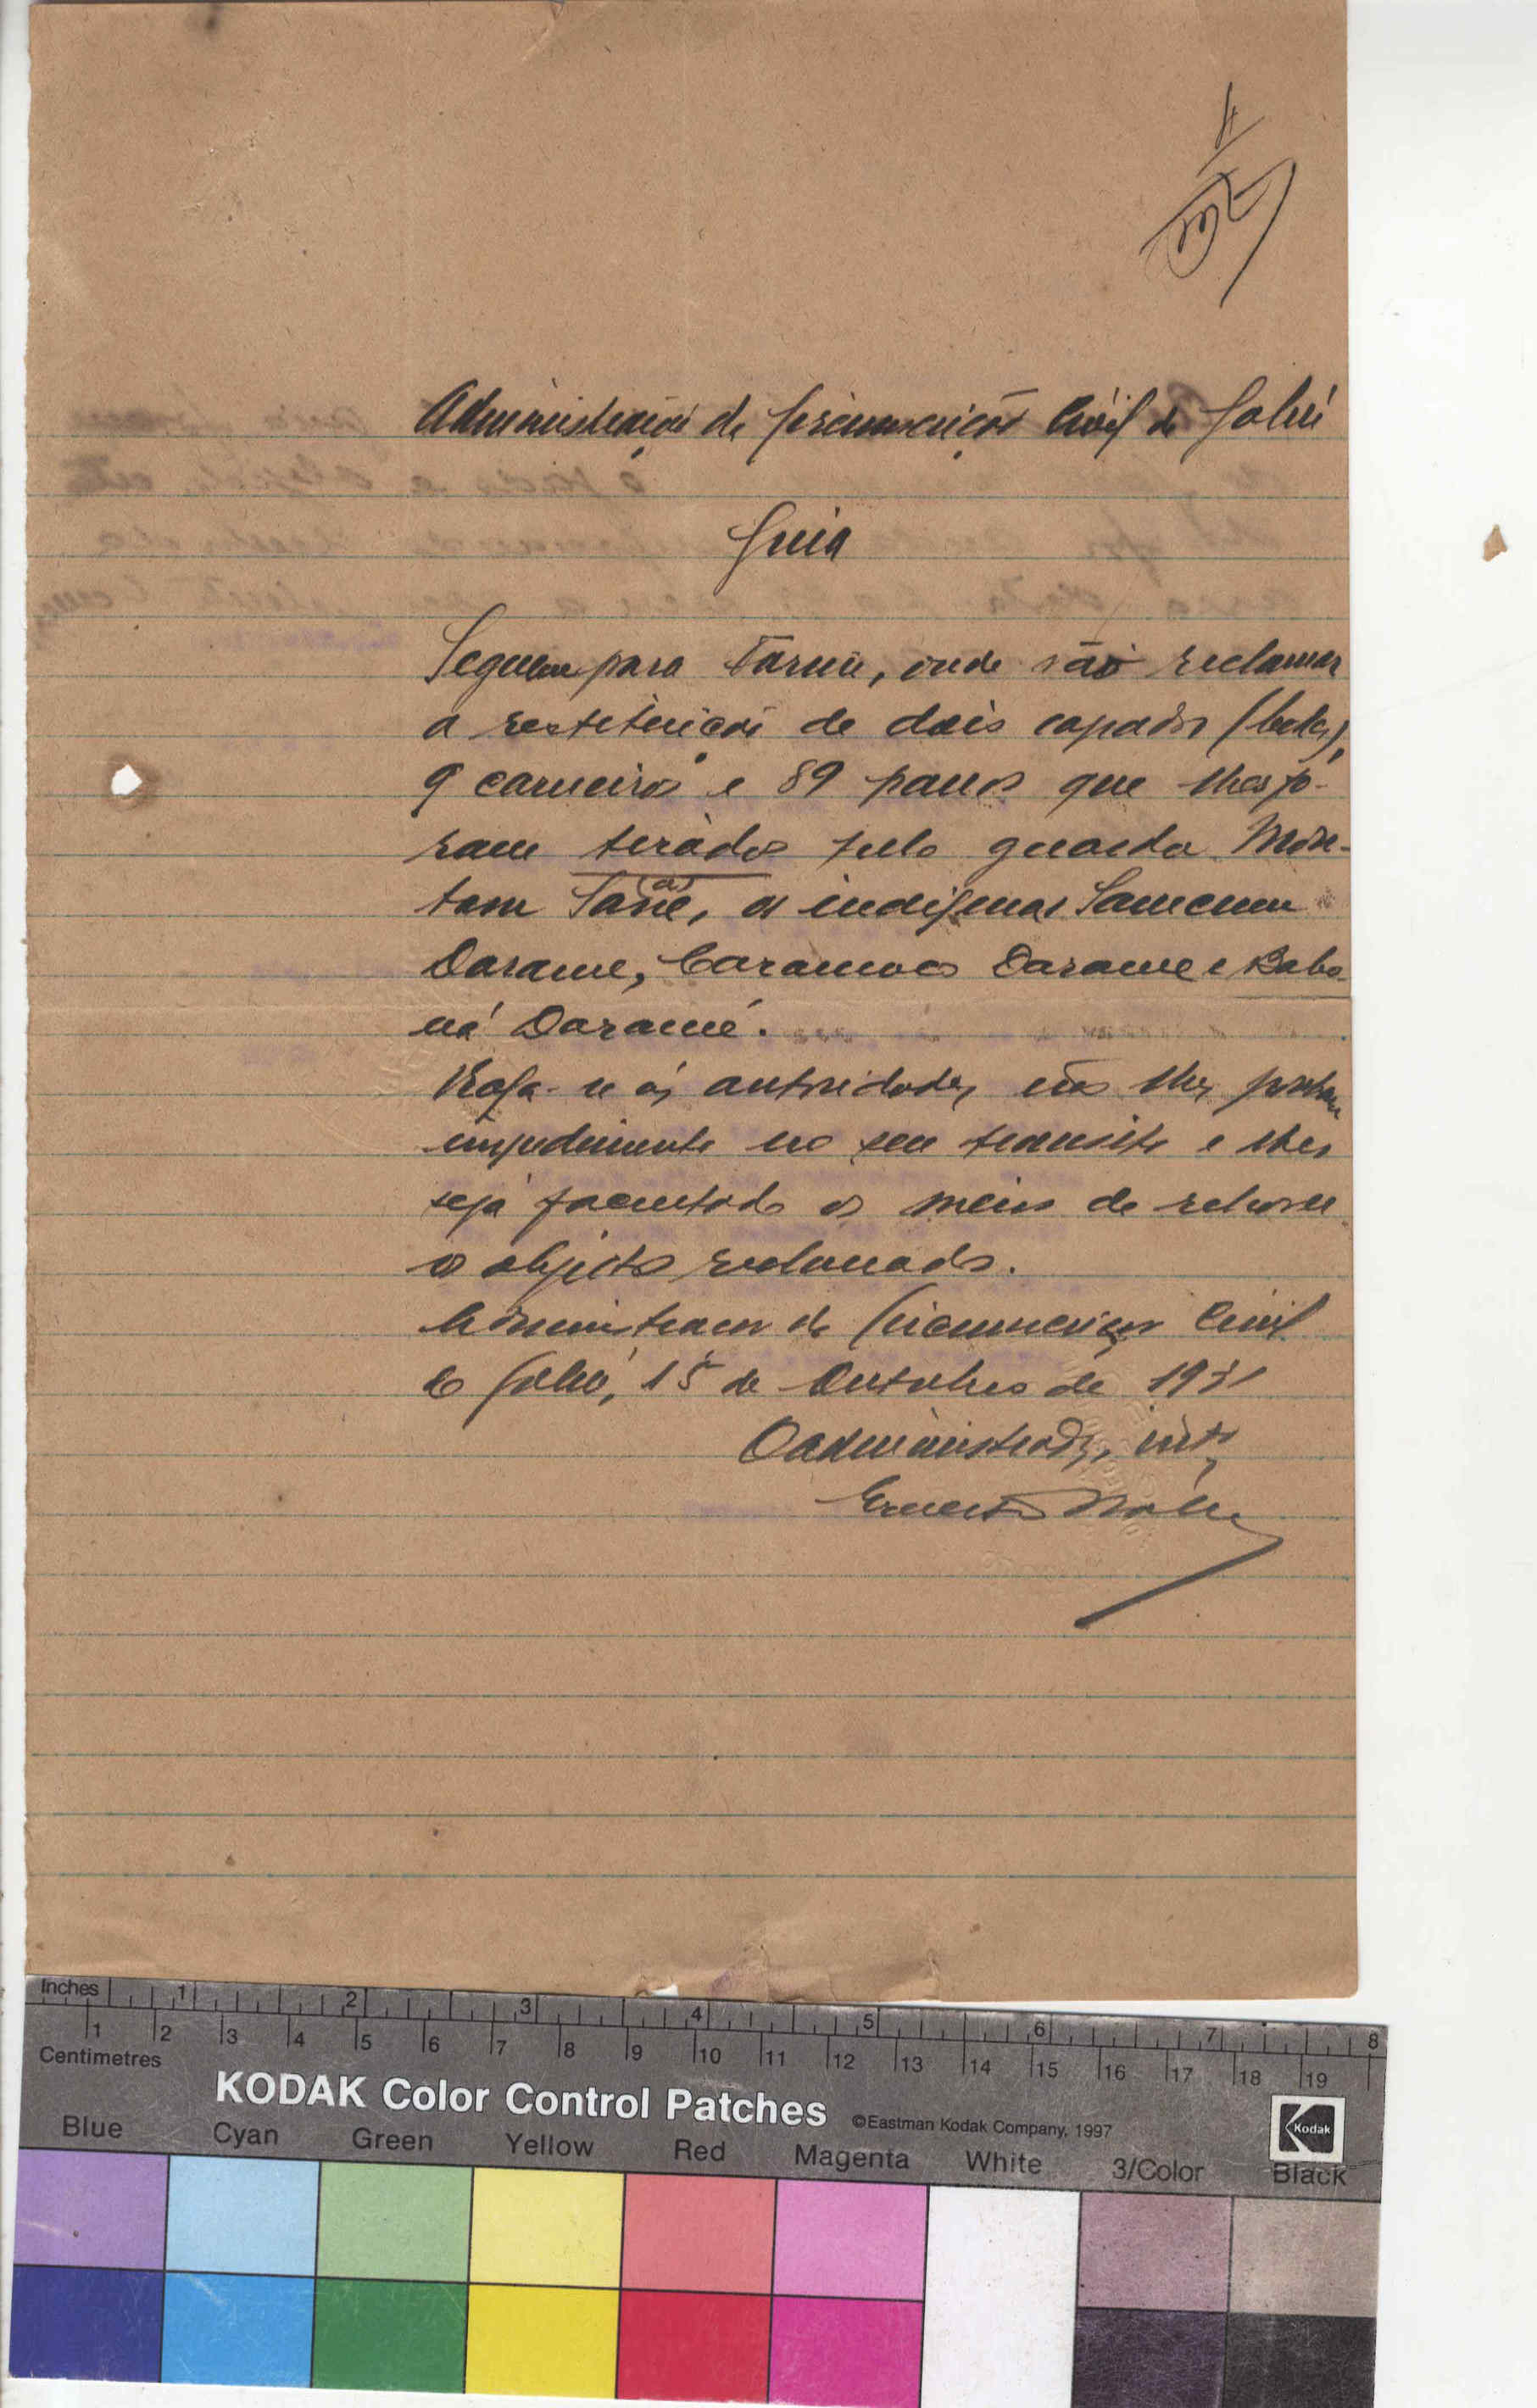 Administração de Circunscrição Civil de Gabú
Guia
Seguem para Farim, onde vão reclamar
a restetuição de dois capados (bodes),
9 carneiros e 89 panos que lhes fô-
ram tirádos pelo guarda
Sané, os indigenas
Darame, Daramee e Babo-
ná Daramé.
Roga-se ás autoridades não lhes ponham
impedimento no seu transito e lhes
seja facultado os meios de rehaver
o objecto reclamado.
Administração de Circunscrição Civil
de Gabú, 15 de Outubro de 1931
O administrador, intº
Ernesto
Inches 1 2 3 4 5 6 7 8
1 2 3 4 5 6 7 8 9 10 11 12 13 14 15 16 17 18 19
Centimetres
KODAK Color Control Patches ©Eastman Kodak Company, 1997 Kodak
Blue Cyan Green Yellow Red Magenta White 3/Color Black